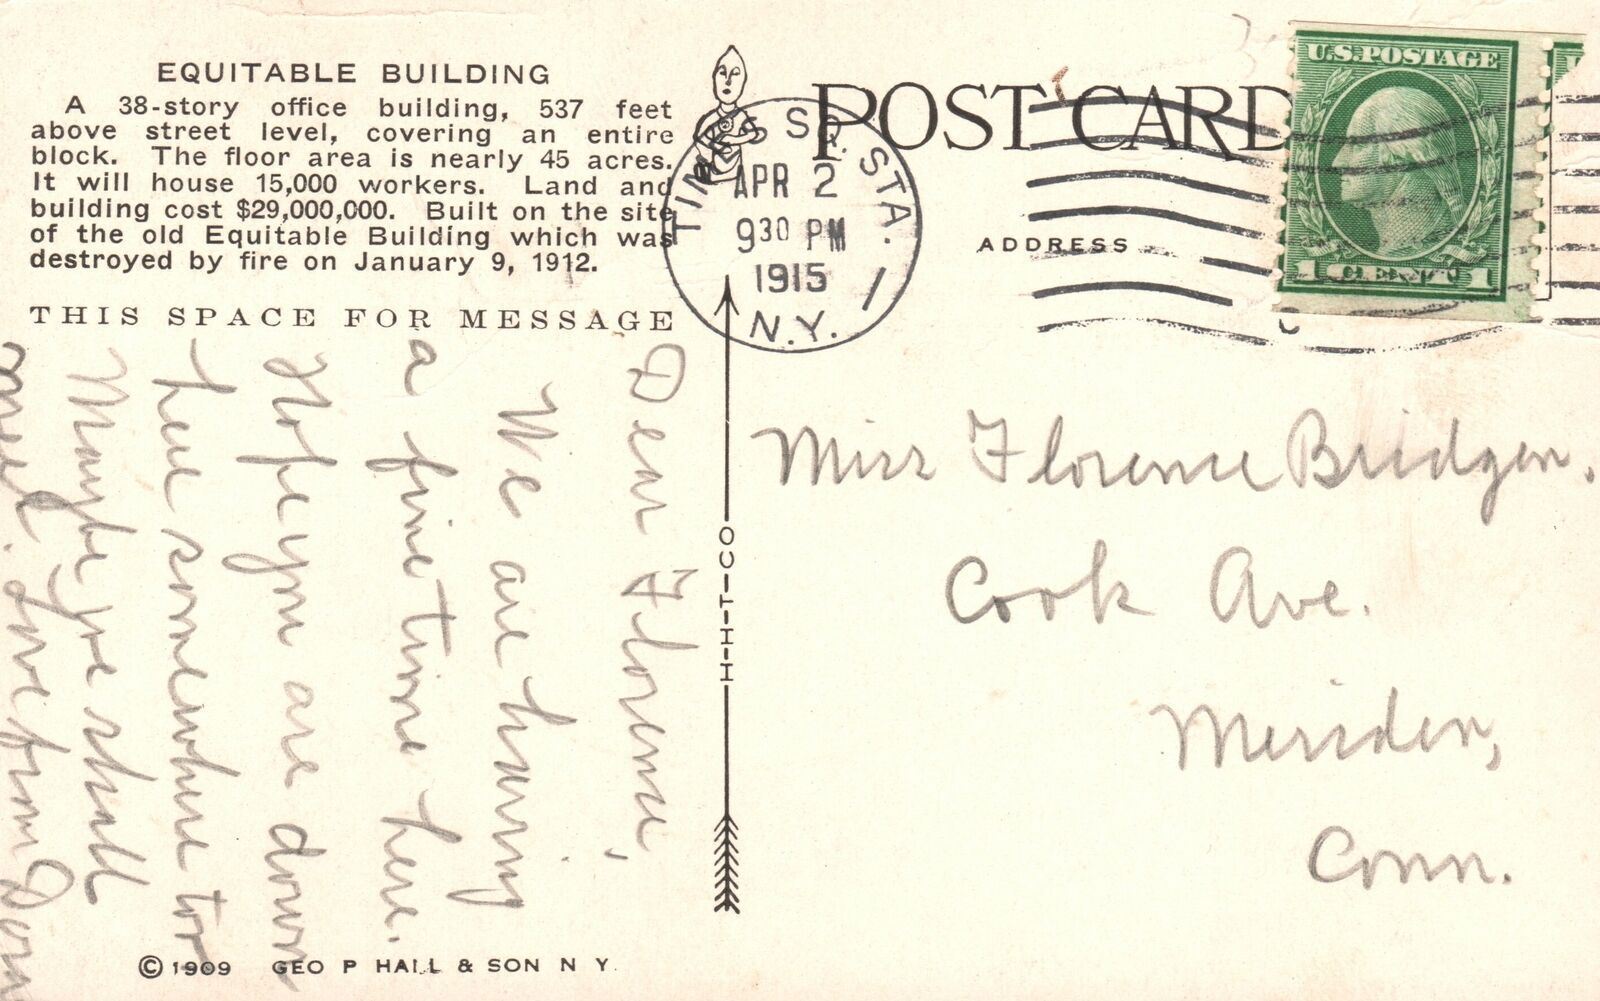 EQUITABLE BUILDING
A 38-story office building, 537 feet
above street level, covering an entire
block. The floor area is nearly 45 acres.
It will house 15,000 workers. Land and
building cost $29,000,000. Built on the site
of the old Equitable Building which was
destroyed by fire on January 9, 1912.
THIS SPACE FOR MESSAGE
Dear Florence,
We are having
a fine time here.
Hope you are down
here somewhere too
Maybe we shall
meet. Love from
© 1909 GEO P HALL & SON N Y.
H-H-T-CO
POST CARD
TIMES SQ. STA.
APR 2
9 30 PM
1915
N.Y.
ADDRESS
U.S. POSTAGE
1 CENT 1
Miss Florence Bridgen.
Cook Ave.
Meriden,
Conn.